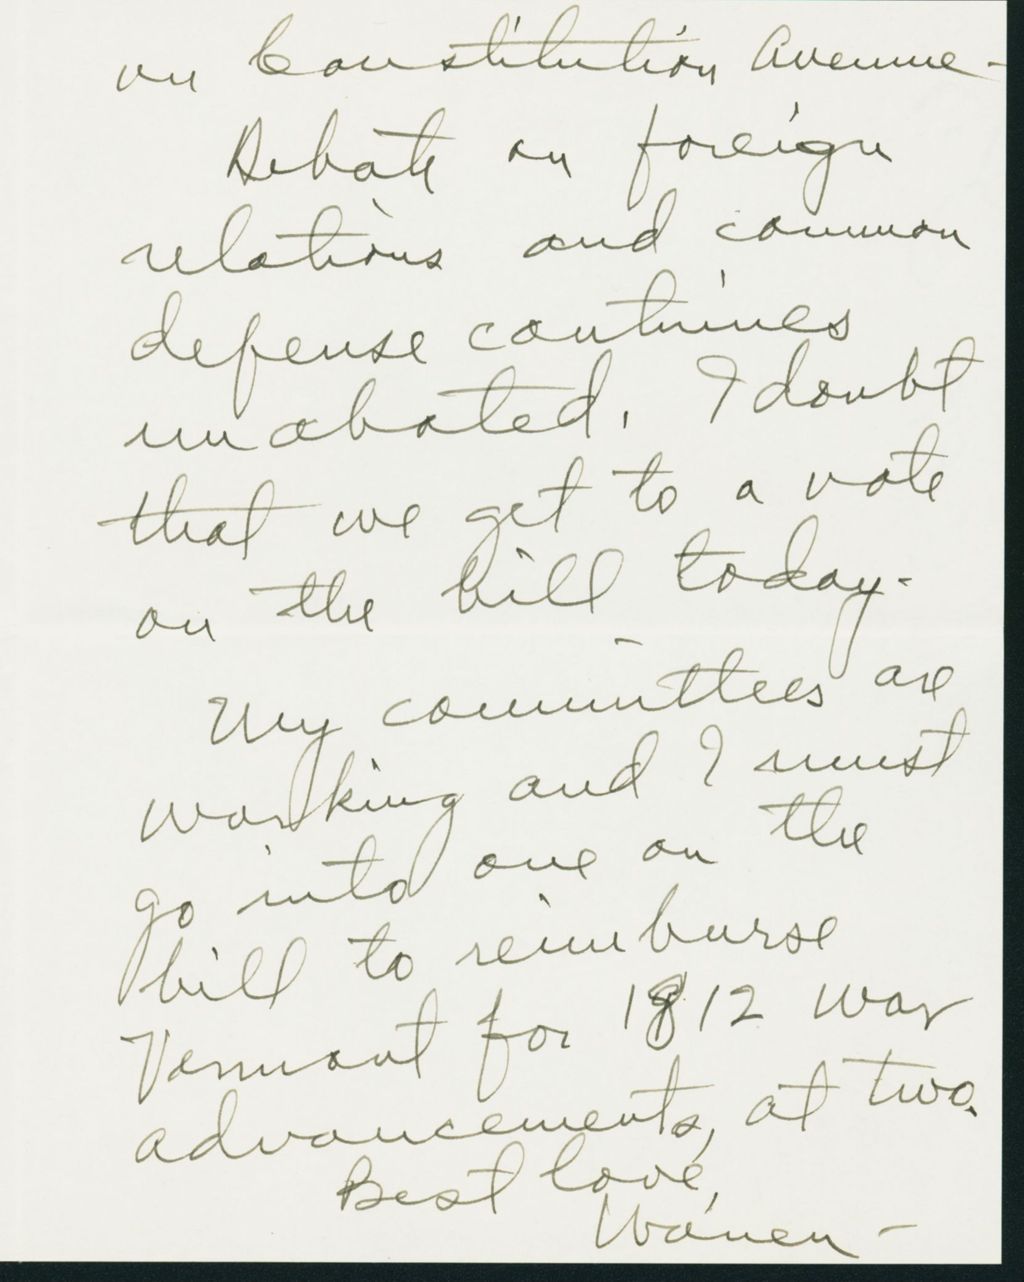 on Constitution Avenue -
Debate on foreign
relations and common
defense continues
unabated. I doubt
that we get to a vote
on the bill today.
My committees are
working and I must
go into one on the
bill to reimburse
Vermont for 1812 war
advancements, at two.
Best love,
Warren -